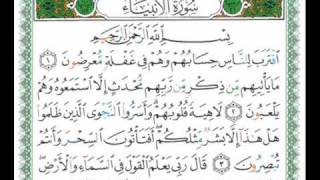 سُورَةُ الأَنْبِيَاءِ
بِسْمِ اللَّهِ الرَّحْمَٰنِ الرَّحِيمِ
اقْتَرَبَ لِلنَّاسِ حِسَابُهُمْ وَهُمْ فِي غَفْلَةٍ مُّعْرِضُونَ ١
مَا يَأْتِيهِم مِّن ذِكْرٍ مِّن رَّبِّهِم مُّحْدَثٍ إِلَّا اسْتَمَعُوهُ وَهُمْ
يَلْعَبُونَ ٢ لَاهِيَةً قُلُوبُهُمْ وَأَسَرُّوا النَّجْوَى الَّذِينَ ظَلَمُوا
هَلْ هَٰذَا إِلَّا بَشَرٌ مِّثْلُكُمْ أَفَتَأْتُونَ السِّحْرَ وَأَنتُمْ
تُبْصِرُونَ ٣ قَالَ رَبِّي يَعْلَمُ الْقَوْلَ فِي السَّمَاءِ وَالْأَرْضِ